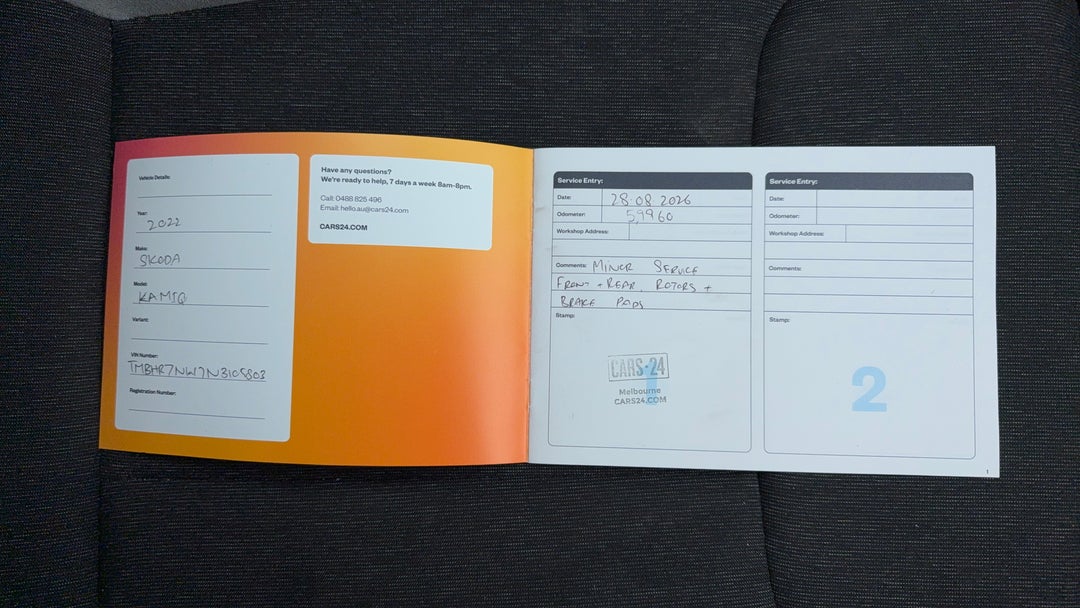 Vehicle Details:
Year:
2022
Make:
SKODA
Model:
KAMIQ
Variant:
VIN Number:
Registration Number:
Have any questions?
We're ready to help, 7 days a week 8am-8pm.
Call: 0488 825 496
Email: hello.au@cars24.com
CARS24.COM
Service Entry:
Date: 28.08 2026
Odometer: 59960
Workshop Address:
Comments: MINOR SERVICE
FRONT + REAR ROTORS +
BRAKE PADS
Stamp:
CARS24
Melbourne
CARS24.COM
1
Service Entry:
Date:
Odometer:
Workshop Address:
Comments:
Stamp:
2
1